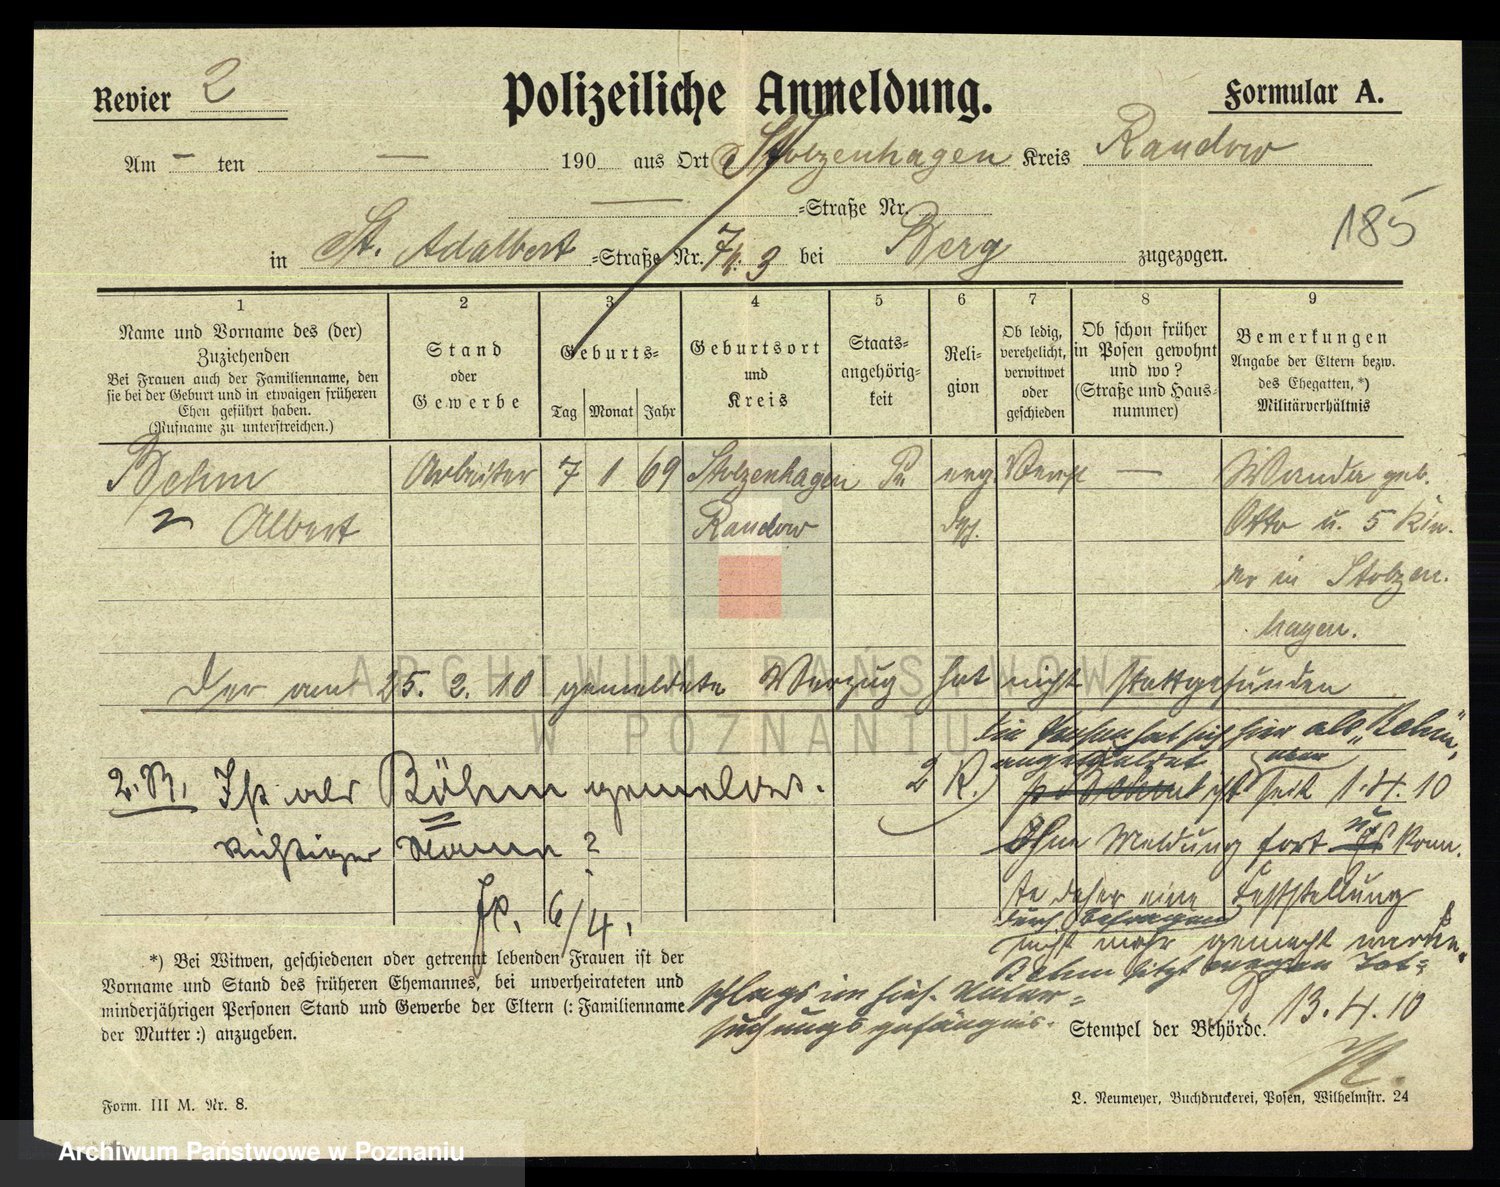 Revier 2
Polizeiliche Anmeldung.
Formular A.
Am – ten — 190 aus Ort Stolzenhagen Kreis Randow
— -Straße Nr.
185
in St. Adalbert -Straße Nr. 7 3 bei Berg zugezogen.
1 2 3 4 5 6 7 8 9
Name und Vorname des (der)
Zuziehenden
Bei Frauen auch der Familienname, den
sie bei der Geburt und in etwaigen früheren
Ehen geführt haben.
(Rufname zu unterstreichen.)
Stand
oder
Gewerbe
Geburts-
Tag Monat Jahr
Geburtsort
und
Kreis
Staats-
angehörig-
keit
Reli-
gion
Ob ledig,
verehelicht,
verwitwet
oder
geschieden
Ob schon früher
in Posen gewohnt
und wo?
(Straße und Haus-
nummer)
Bemerkungen
Angabe der Eltern bezw.
des Ehegatten, *)
Militärverhältnis
Behm Arbeiter 7 1 69 Stolzenhagen Pr. — Wanda geb.
Albert Randow Otto u. 5 Kin-
der in Stolzen-
hagen.
Der am 25. 2. 10 gemeldete Verzug hat nicht stattgefunden
hat sich hier als „Behm"
angemeldet
seit 1.4.10
2. R. Ist als Böhm gemeldet. 2 R.
Ohne Meldung fort konn-
richtiger Name?
te daher eine Feststellung
durch Befragen
6/4.
nicht mehr gemacht werden.
Behm sitzt wegen Tot-
schlags im hies. Unter-
suchungsgefängnis.
13.4.10
*) Bei Witwen, geschiedenen oder getrennt lebenden Frauen ist der
Vorname und Stand des früheren Ehemannes, bei unverheirateten und
minderjährigen Personen Stand und Gewerbe der Eltern (: Familienname
der Mutter :) anzugeben.
Stempel der Behörde.
Form. III M. Nr. 8.
L. Neumeyer, Buchdruckerei, Posen, Wilhelmstr. 24
ARCHIWUM PAŃSTWOWE
W POZNANIU
Archiwum Państwowe w Poznaniu